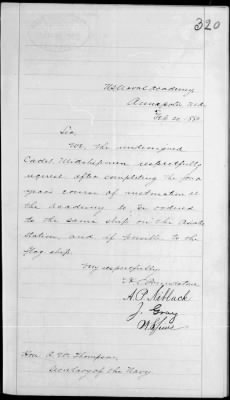 320
U.S. Naval Academy
Annapolis Md.
Feb 20, 1880
Sir
We, the undersigned
Cadet Midshipmen respectfully
request after completing the four
years course of instruction at
the Academy to be ordered
to the same ship on the Asiatic
station, and if possible to the
flag ship.
Very respectfully
A. P. Niblack
J. Gray
W. S. Sims
Hon. R. W. Thompson,
Secretary of the Navy